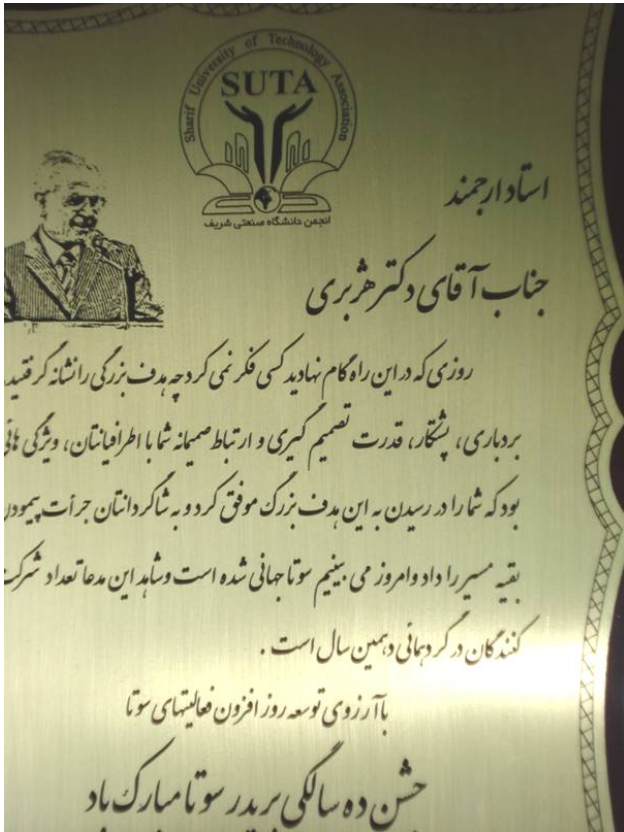 Sharif University of Technology Association
SUTA
انجمن دانشگاه صنعتی شریف
استاد ارجمند
جناب آقای دکتر هژبری
روزی که در این راه گام نهادید کسی فکر نمی کرد چه هدف بزرگی را نشانه گرفتید
بردباری، پشتکار، قدرت تصمیم گیری و ارتباط صمیمانه شما با اطرافیانتان، ویژگی هائی
بود که شما را در رسیدن به این هدف بزرگ موفق کرد و به شاگردانتان جرأت پیمودن
بقیه مسیر را داد و امروز می بینیم سوتا جهانی شده است و شاهد این مدعا تعداد شرکت
کنندگان در گردهمائی دهمین سال است .
با آرزوی توسعه روز افزون فعالیتهای سوتا
جشن ده سالگی بر پدر سوتا مبارک باد